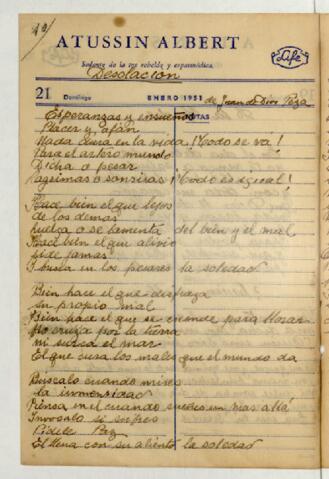 ATUSSIN ALBERT
Life
Sedante de la tos rebelde y espasmódica.
Desolacion
21 Domingo ENERO 1951 de Juan de Dios Peza
NOTAS
Esperanzas y ensueños
Placer y afán
Nada dura en la vida ¡Todo se vá!
Para el artero mundo
Dicha o pesar
Lagrimas o sonrisas ¡Todo es igual!
Hace bien el que lejos
de los demas
huelga o se lamenta del bien y el mal
Hace bien el que alivio
pide jamas
I busca en los pesares la soledad
Bien hace el que disfraza
su propio mal
Bien hace el que se esconde para llorar
No cruza por la tierra
ni surca el mar
El que cura los males que el mundo da
Búscalo cuando mires
la inmensidad
Piensa en el cuando sueñes un mas allá
Invocalo si sufres
Pídele Paz
El llena con su aliento la soledad